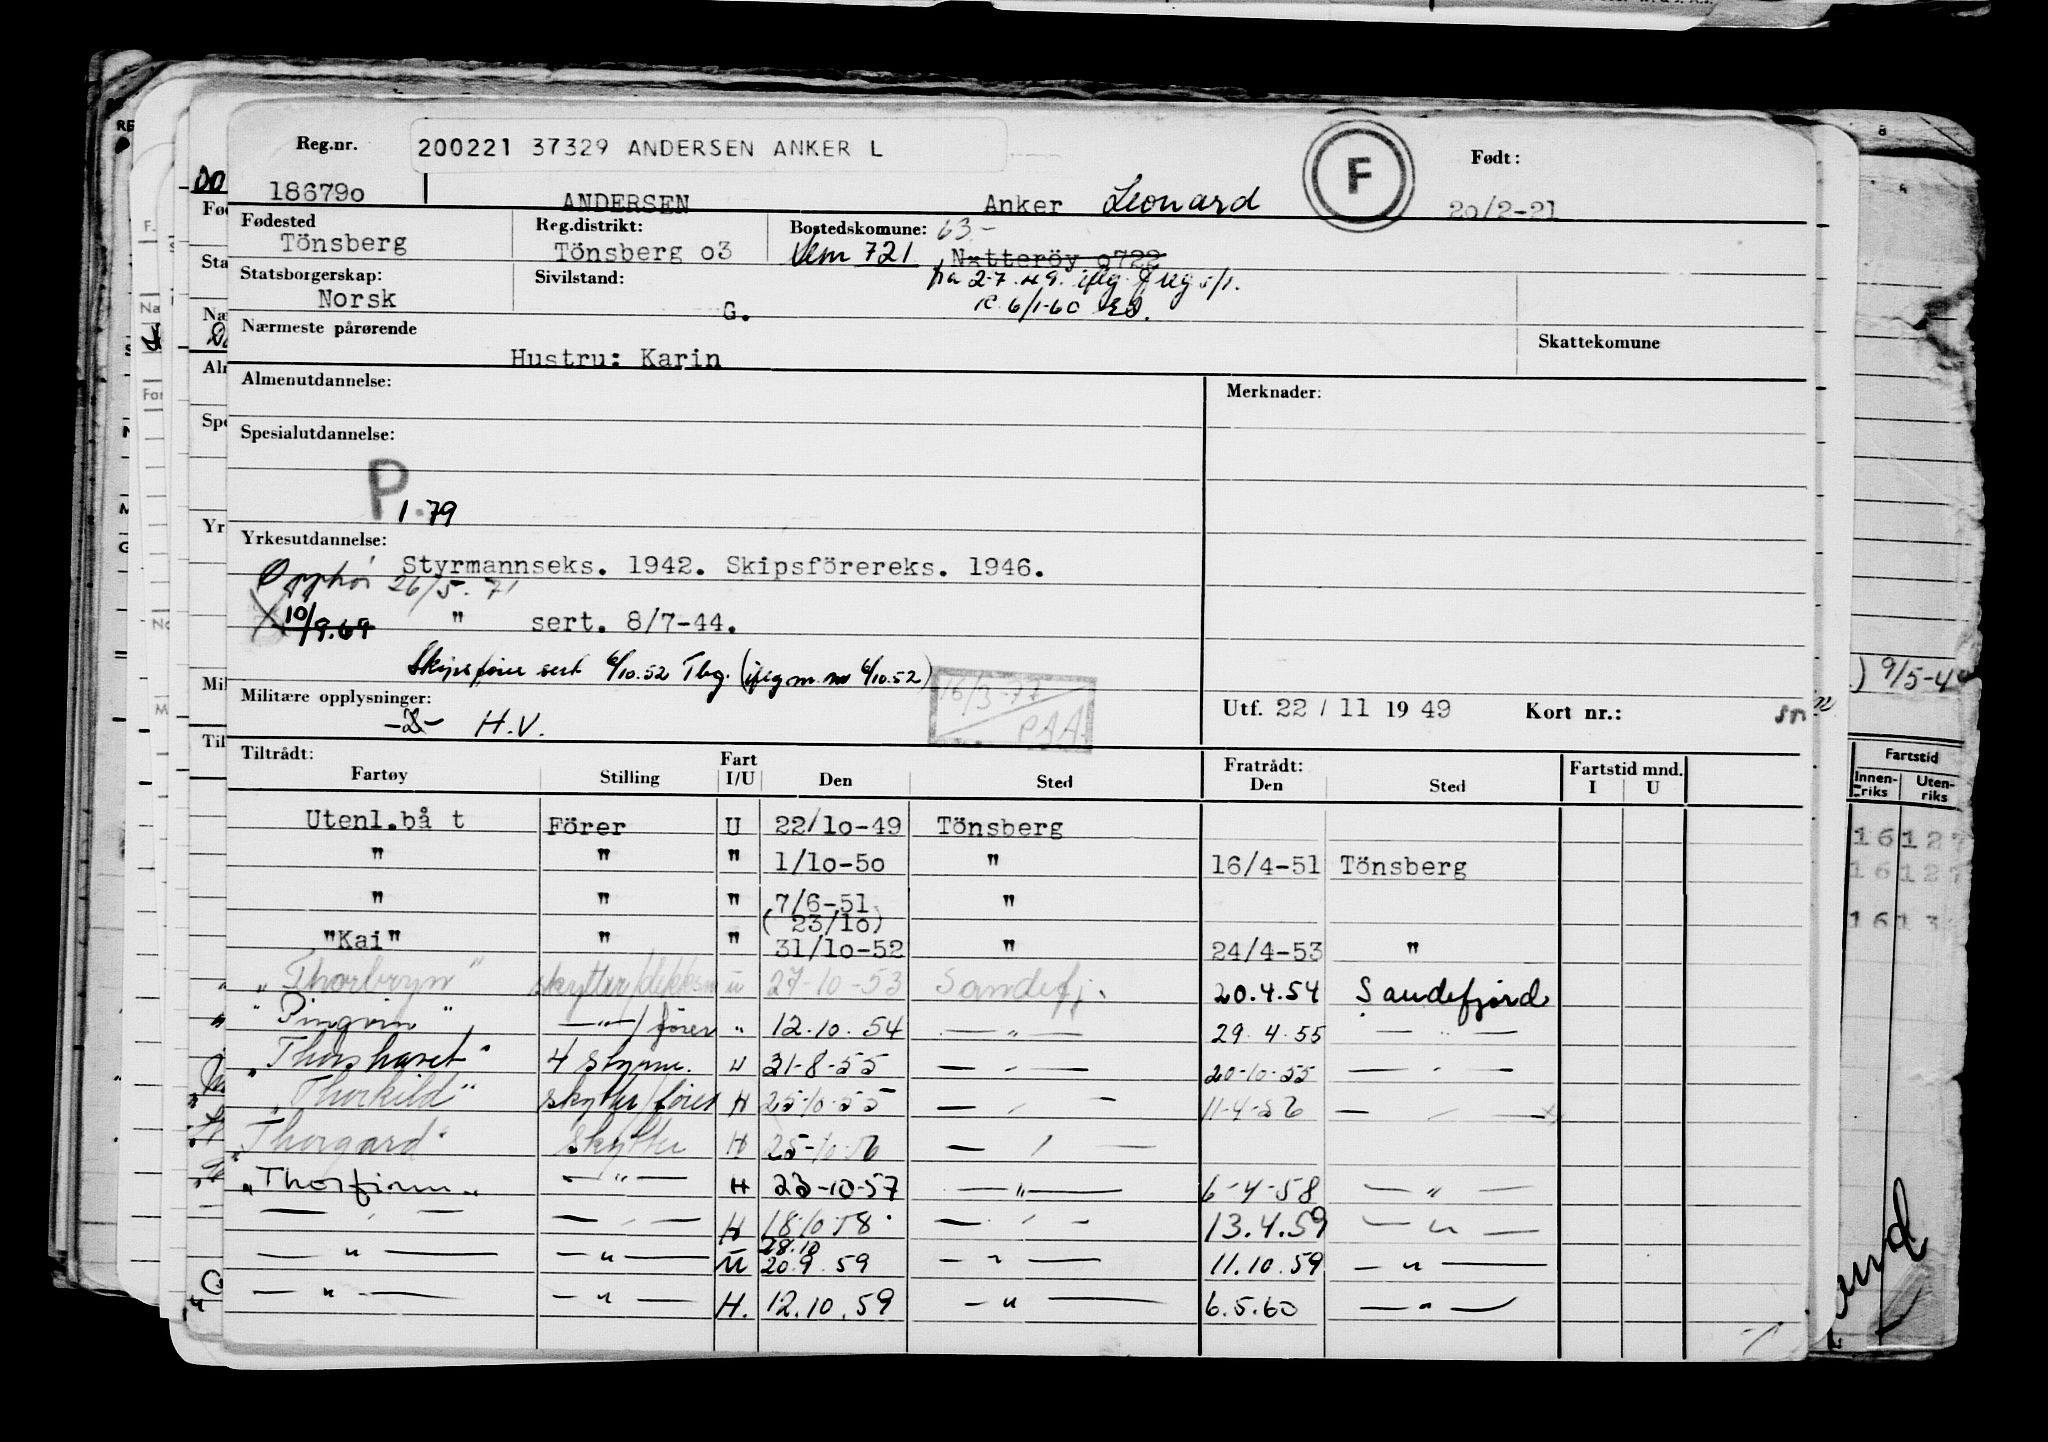 Reg.nr. 200221 37329 ANDERSEN ANKER L F Født:
186790 ANDERSEN Anker Leonard 20/2-21
Fødested Reg.distrikt: Bostedskomune: 63-
Tönsberg Tönsberg o3 Sem 721 Nøtteröy o722
Statsborgerskap: Sivilstand: fra 2-7.49.
Norsk G. 6/1-60
Nærmeste pårørende Skattekomune
Hustru: Karin
Almenutdannelse: Merknader:
Spesialutdannelse:
P 1.79
Yrkesutdannelse:
Styrmannseks. 1942. Skipsförereks. 1946.
Opphør 26/5.71
10/9.69 " sert. 8/7-44.
Skipsfører sert 6/10.52 Tbg. 6/10.52)
Militære opplysninger: 16/3-77 PAA
H.V. Utf. 22 / 11 19 49 Kort nr.:
Tiltrådt: Fart Fratrådt: Fartstid mnd.
Fartøy Stilling I/U Den Sted Den Sted I U
Utenl.bå t Förer U 22/10-49 Tönsberg
" " " 1/10-50 " 16/4-51 Tönsberg
" " " 7/6-51 "
(23/10)
"Kai" " " 31/10-52 " 24/4-53 "
"Thorbryn" skytter/dekksm u 27-10-53 Sandefj. 20.4.54 Sandefjord
"Pingvin" —"—/fører " 12.10.54 —"— 29.4.55 —"—
"Thorshavet" 4 styrm. " 31-8-55 —"— 20-10-55 —"—
"Thorkild" skytter/fører H 25-10-55 —"— 11-4-56 —"—
"Thorgard" Skytter H 25-10-56 —"—
"Thorfinn" —"— H 23-10-57 —"— 6-4-58 —"—
—"— —"— H 18.10.58 —"— 13.4.59 —"—
28.10
—"— —"— U 20.9.59 —"— 11.10.59 —"—
—"— —"— H. 12.10.59 —"— 6.5.60 —"—
) 9/5-4
Fartstid
Innen-riks Uten-riks
16 127
16 127
16 13